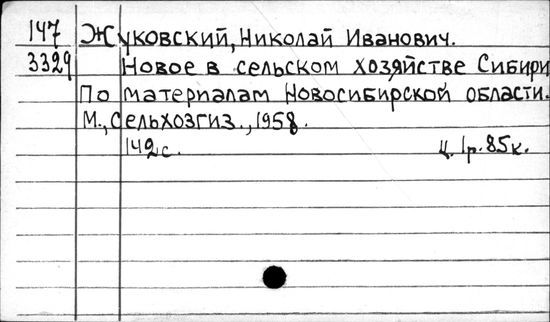 147 Жуковский, Николай Иванович.
3329 Новое в сельском хозяйстве Сибири
По материалам Новосибирской области.
М., Сельхозгиз., 1958.
142с. ц. 1р. 85к.